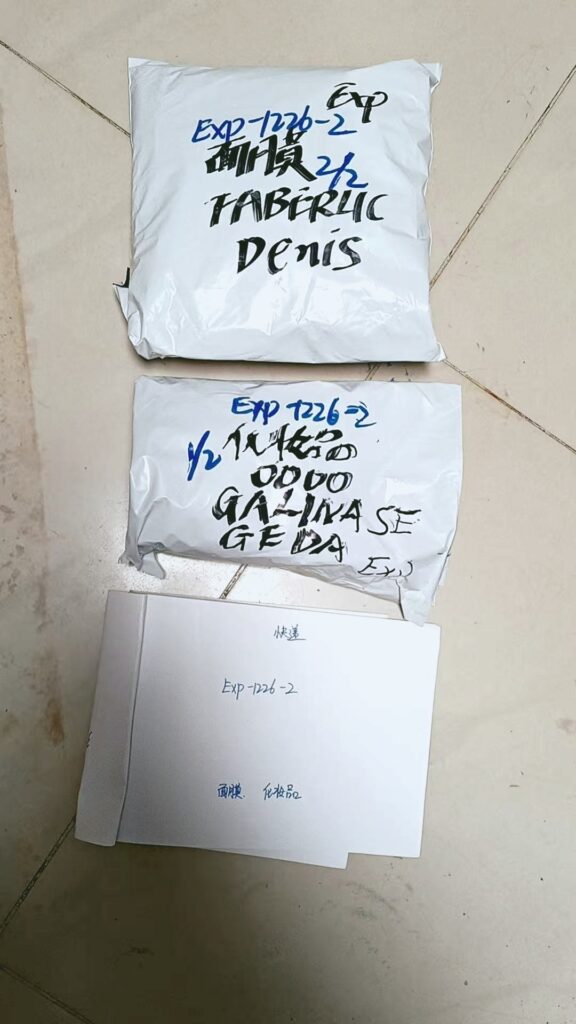 Exp
Exp-1226-2
面膜 2/2
FABERLIC
Denis
Exp-1226-2
1/2 化妆品
OOOO
GALINA SE
GEDA
Exp
快递
Exp-1226-2
面膜. 化妆品